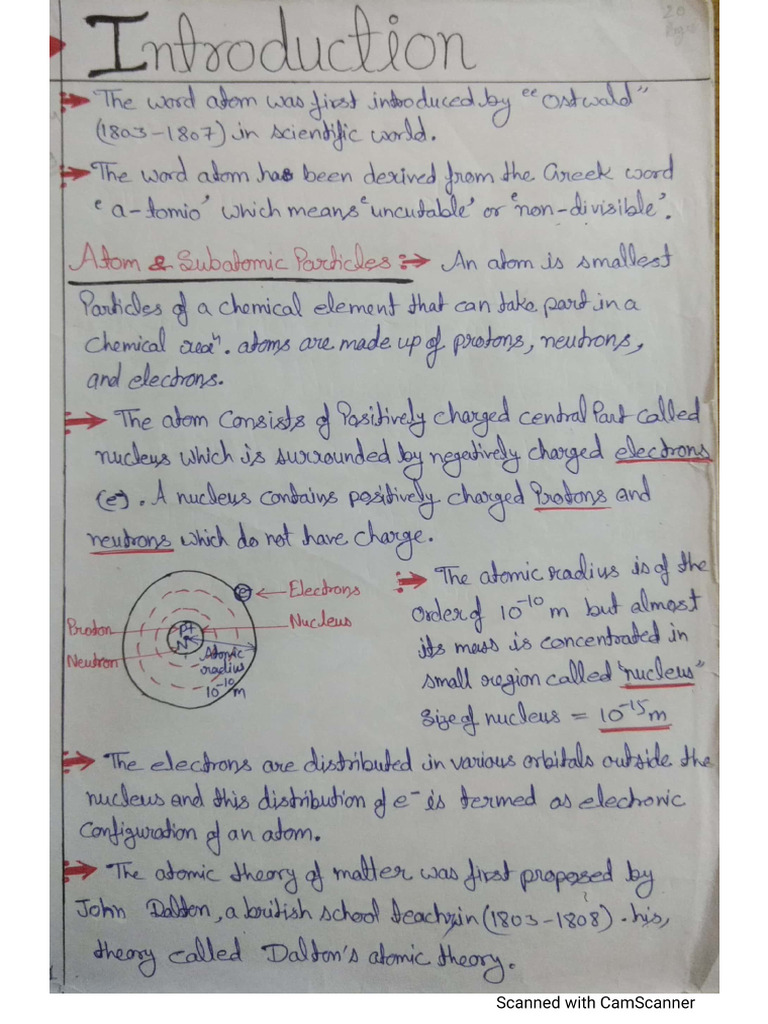 20
Pages
Introduction
The word atom was first introduced by "Ostwald"
(1803-1807) in scientific world.
The word atom has been derived from the Greek word
'a-tomio' which means 'uncutable' or 'non-divisible'.
Atom & Subatomic Particles :→ An atom is smallest
Particles of a chemical element that can take part in a
chemical reaⁿ. atoms are made up of protons, neutrons,
and electrons.
The atom consists of Positively charged central Part called
nucleus which is surrounded by negatively charged electrons
(e⁻). A nucleus contains positively charged Protons and
neutrons which do not have charge.
The atomic radius is of the
order of 10⁻¹⁰ m but almost
its mass is concentrated in
small region called "nucleus"
Size of nucleus = 10⁻¹⁵ m
e⁻
Electrons
Nucleus
Proton
Neutron
P+
N
Atomic
radius
10⁻¹⁰ m
The electrons are distributed in various orbitals outside the
nucleus and this distribution of e⁻ is termed as electronic
Configuration of an atom.
The atomic theory of matter was first proposed by
John Dalton, a british school teachr, in (1803-1808). his,
theory called Dalton's atomic theory.
1
Scanned with CamScanner